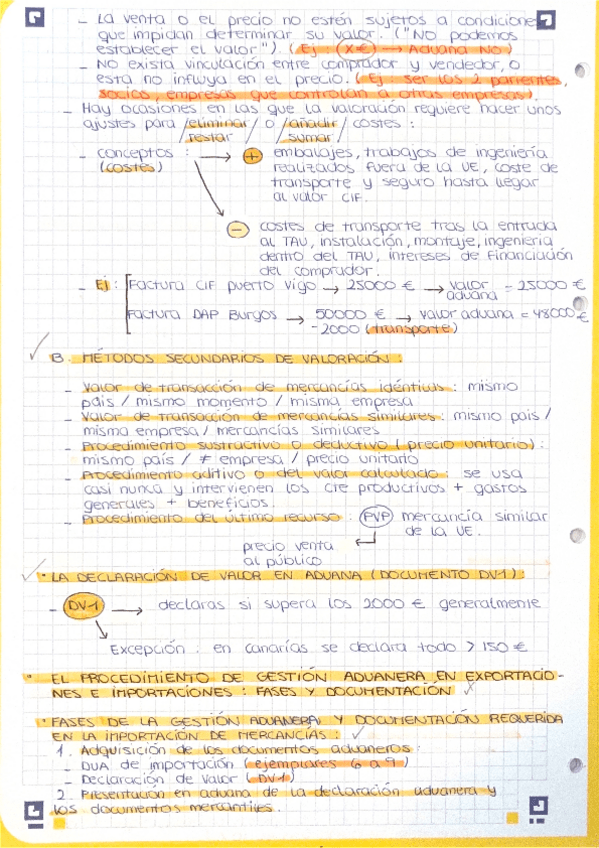 - La venta o el precio no estén sujetos a condiciones
que impidan determinar su valor. ("No podemos
establecer el valor"). (Ej: X€ → Aduana No)
- No exista vinculación entre comprador y vendedor, o
esta no influya en el precio. (Ej: ser los 2 parientes,
socios, empresas que controlan a otras empresas).
- Hay ocasiones en las que la valoración requiere hacer unos
ajustes para /eliminar/ o /añadir/ costes:
restar / sumar
- conceptos: → + embalajes, trabajos de ingeniería
(costes) realizados fuera de la UE, coste de
transporte y seguro hasta llegar
al valor CIF.
- costes de transporte tras la entrada
al TAU, instalación, montaje, ingeniería
dentro del TAU, intereses de financiación
del comprador.
- Ej: Factura CIF puerto Vigo → 25000 € → valor aduana = 25000 €
Factura DAP Burgos → 50000 € → valor aduana = 48000 €
-2000 (transporte)
B. MÉTODOS SECUNDARIOS DE VALORACIÓN:
- Valor de transacción de mercancías idénticas: mismo
país / mismo momento / misma empresa
- Valor de transacción de mercancías similares: mismo país /
misma empresa / mercancías similares
- Procedimiento sustractivo o deductivo (precio unitario):
mismo país / ≠ empresa / precio unitario
- Procedimiento aditivo o del valor calculado: se usa
casi nunca y intervienen los cte productivos + gastos
generales + beneficios.
- Procedimiento del último recurso: PVP mercancía similar
de la UE.
precio venta
al público
• LA DECLARACIÓN DE VALOR EN ADUANA (DOCUMENTO DV1):
- DV-1 → declaras si supera los 2000 € generalmente
Excepción: en canarias se declara todo > 150 €
• EL PROCEDIMIENTO DE GESTIÓN ADUANERA EN EXPORTACIO-
NES E IMPORTACIONES: FASES Y DOCUMENTACIÓN
• FASES DE LA GESTIÓN ADUANERA Y DOCUMENTACIÓN REQUERIDA
EN LA IMPORTACIÓN DE MERCANCÍAS:
1. Adquisición de los documentos aduaneros:
- DUA de importación (ejemplares 6 a 9)
- Declaración de Valor (DV1)
2. Presentación en aduana de la declaración aduanera y
los documentos mercantiles.